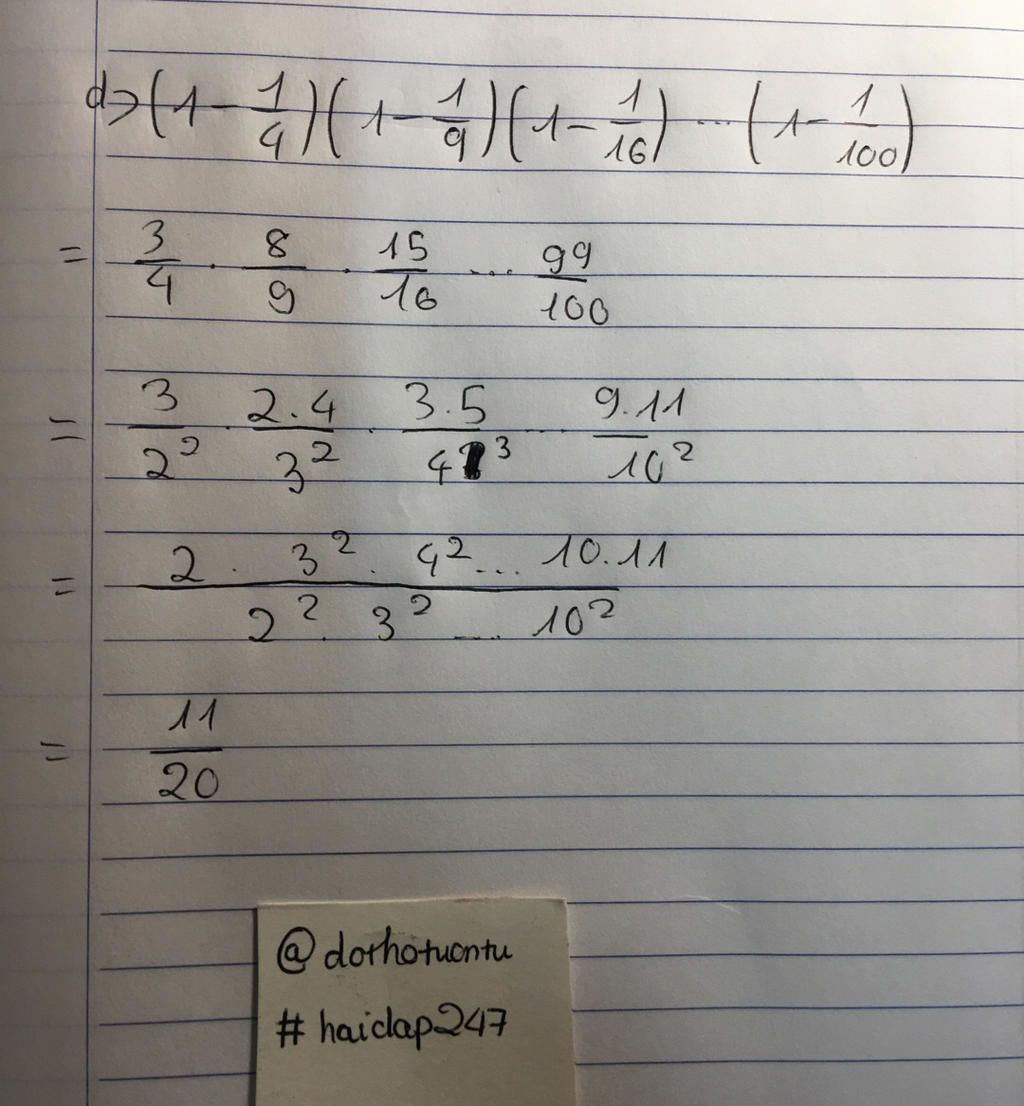 d> (1 - 1/4)(1 - 1/9)(1 - 1/16) ... (1 - 1/100)
= 3/4 . 8/9 . 15/16 ... 99/100
= 3/2² . 2.4/3² . 3.5/4³ ... 9.11/10²
= 2 . 3² . 4² ... 10.11 / 2² . 3² ... 10²
= 11/20
@dothotuontu
#haidap247